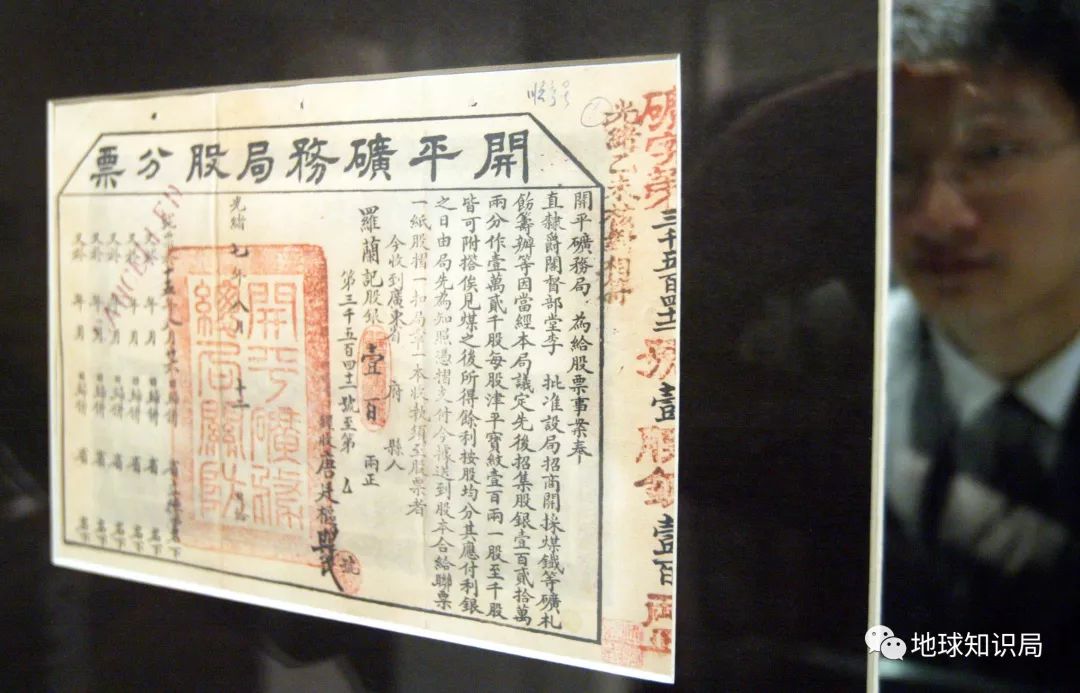 開平礦務局股分票
礦字第三千五百四十二號壹股銀壹百兩正
光緒乙未核對相符
開平礦務局 為給股票事案奉
直隸爵閣督部堂李 批准設局招商開採煤鐵等礦札
飭籌辦等因當經本局議定先後招集股銀壹百貳拾萬
兩分作壹萬貳千股每股津平寶紋壹百兩一股至千股
皆可附搭俟見煤之後所得餘利按股均分其應付利銀
之日由局先為知照憑摺支付今據送到股本合給聯票
一紙股摺一扣局章一本收執須至股票者
今收到廣東省 府 縣人
羅蘭記股銀壹百兩正
第三千五百四十二號至第 號
經收唐廷樞
光緒七年八月十二
開平礦務總局關防
又於 年 月 日歸併 省
又於 年 月 日歸併 省
又於 年 月 日歸併 省
又於 年 月 日歸併 省
又於 年 月 日歸併 省
地球知识局